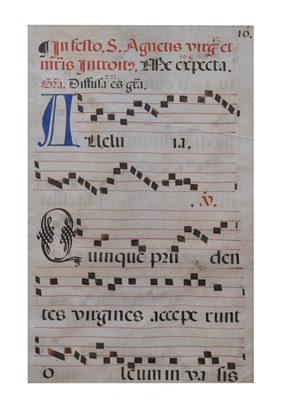 16.
¶ In festo. S. Agnetis virg. et
mris Introit. Me expecta.
Gra. Diffusa es gra.
Allelu ia.
℣.
Quinque pru den
tes virgines accepe runt
o leum in va sis